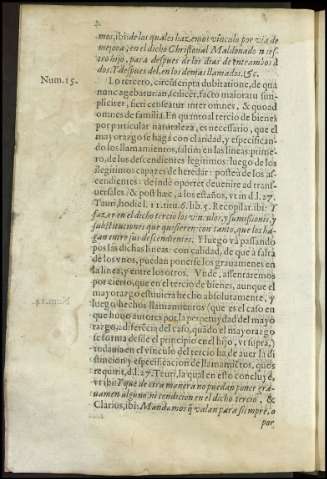 mos, ibi: de los quales hazemos vinculo por via de
mejora, en el dicho Christoual Maldonado nues-
tro hijo, para despues de los dias de entrambos à
dos. Y despues del, en los demas llamados. &c.
Num. 15. Lo tercero, circunscripta dubitatione, de qua
nunc agebatur: an scilicet, facto maioratu sim-
pliciter, fieri censeatur inter omnes, & quoad
omnes de familia. En quanto al tercio de bienes
por particular naturaleza, es necessario, que el
mayorazgo se haga con claridad, y especifican-
do los llamamientos, saltim en las lineas: prime-
ro, de los descendientes legitimos: luego de los
ilegitimos capaces de heredar: postea de los as-
cendientes: deinde oportet deuenire ad trans-
uersales: & post hæc, a los estraños, vt in d.l. 27.
Tauri, hodie l. 11. titu. 6. lib. 5. Recopilar. ibi: Y
fazer en el dicho tercio los vinculos, y sumissiones, y
substituciones que quisieren: con tanto, que los ha-
gan entre sus descendientes; Y luego và passando
por las dichas lineas: con calidad, de que à falta
de los vnos, puedan ponerse los grauamenes en
la linea, y entre los otros. Vnde, assentaremos
por cierto, que en el tercio de bienes, aunque el
mayorazgo estuuiera hecho absolutamente, y
luego hechos llamamientos (que es caso en
que huuo autores por la perpetuydad del mayo
razgo, a diferēcia del caso, quādo el mayorazgo
se forma desde el principio en el hijo, vt supra,)
todauia en el vinculo del tercio ha de auer la di
stincion y especificacion de llamamiētos, quos
requirit, d.l. 27. Tauri, la qual en esto concluye,
vt ibi: Y que de otra manera no puedan poner gra-
uamen alguno, ni condicion en el dicho tercio, &
Clarius, ibi: Mandamos q̄ valan para siempre, o
por